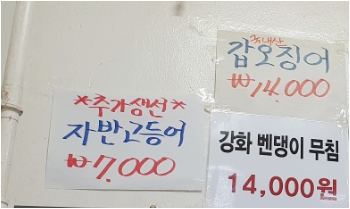 *추가생선*
자반고등어
₩7,000
국내산
갑오징어
₩14.000
강화 벤댕이 무침
14,000원